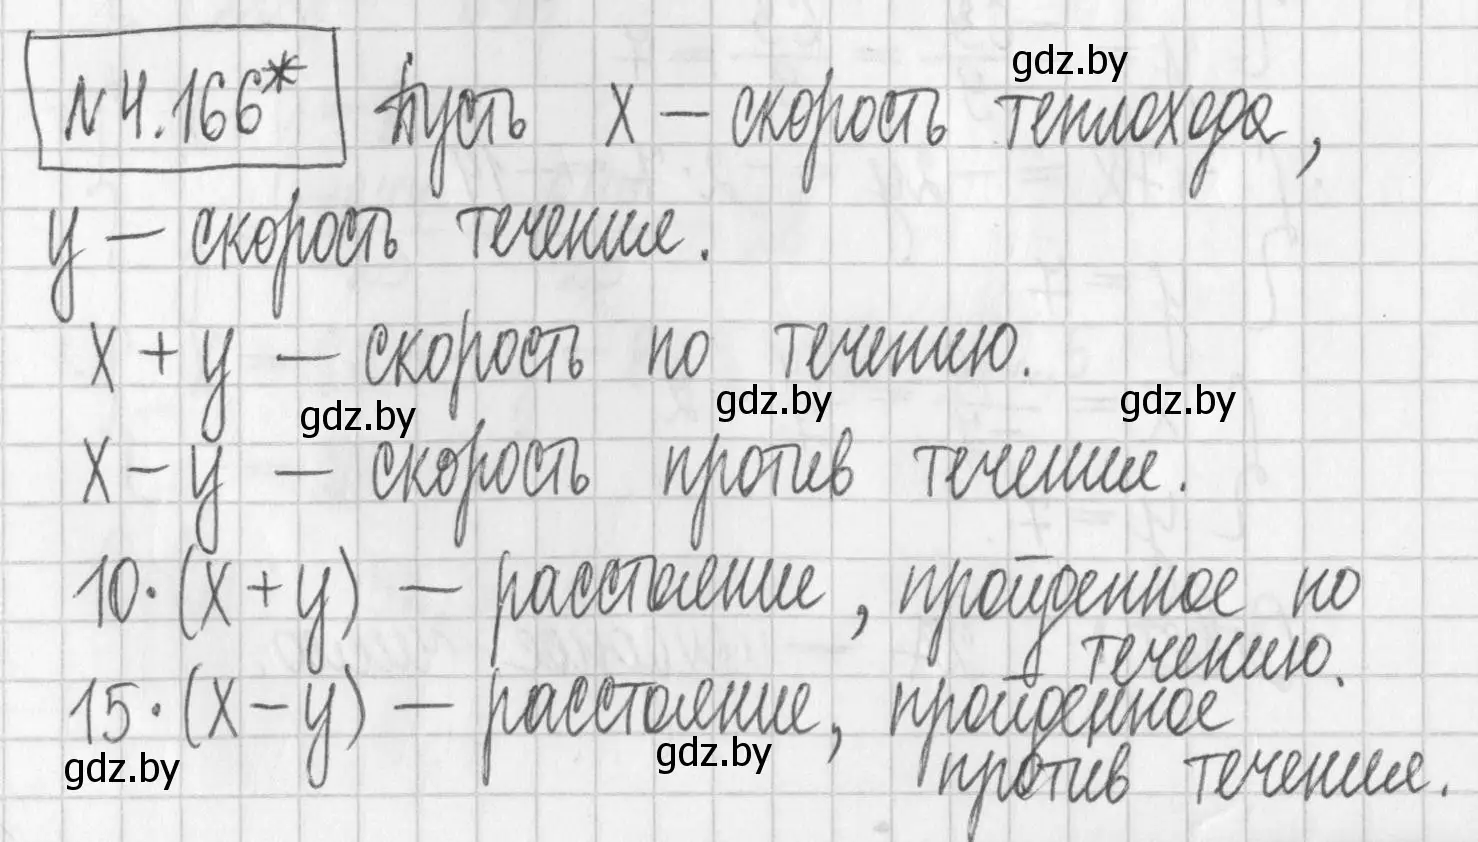 gdz.by
№4.166* Пусть x – скорость теплохода,
y – скорость течения.
x + y – скорость по течению.
gdz.by gdz.by gdz.by
x – y – скорость против течения.
10·(x + y) – расстояние, пройденное по
течению.
15·(x – y) – расстояние, пройденное
gdz.by gdz.by
против течения.